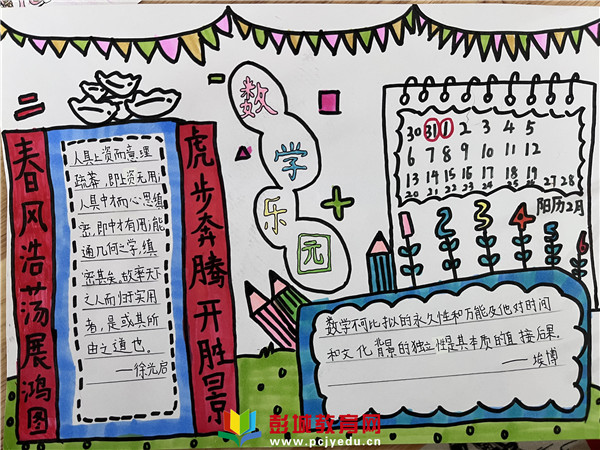 春风浩荡展鸿图
人具上资而意理
疏莽,即上资无用;
人具中才而心思缜
密,即中才有用;能
通几何之学,缜
密甚矣,故率天下
之人而归实用
者,是或其所
由之道也。
——徐光启
虎步奔腾开胜景
数学乐园
30 31 1 2 3 4 5
6 7 8 9 10 11 12
13 14 15 16 17 18 19
20 21 22 23 24 25 26 27 28
阳历2月
1 2 3 4 5 6
数学不可比拟的永久性和万能及他对时间
和文化背景的独立性是其本质的直接后果.
——埃博
彭城教育网
www.pcjyedu.cn